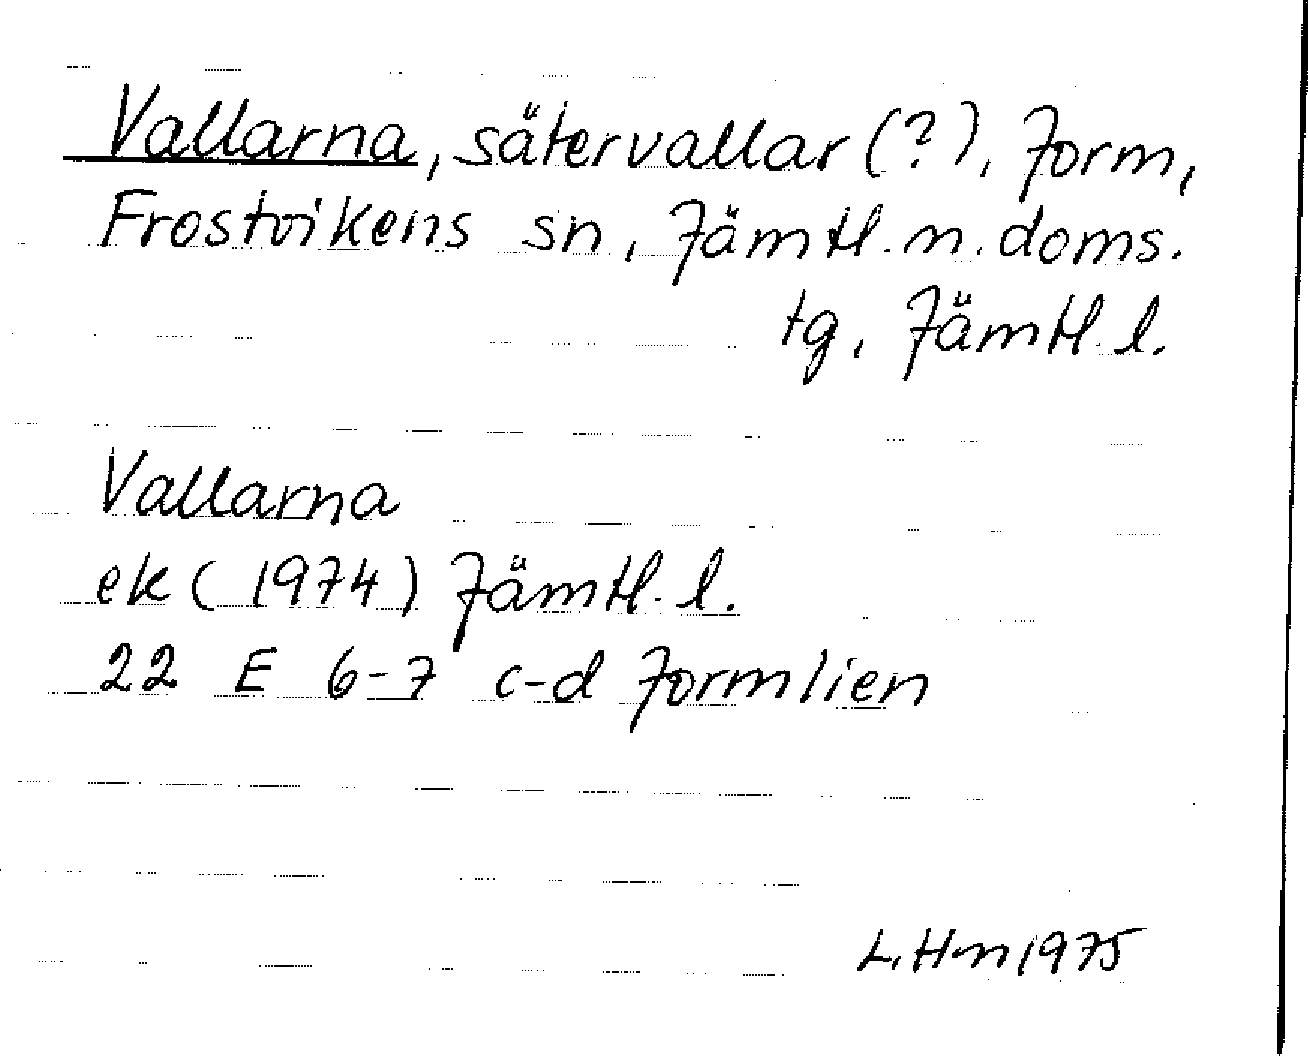 Vallarna, sätervallar (?), Jorm,
Frostvikens sn, Jämtl. n. doms.
tg, Jämtl. l.
Vallarna
ek (1974) Jämtl. l.
22 E 6-7 c-d Jormlien
L. Hn 1975